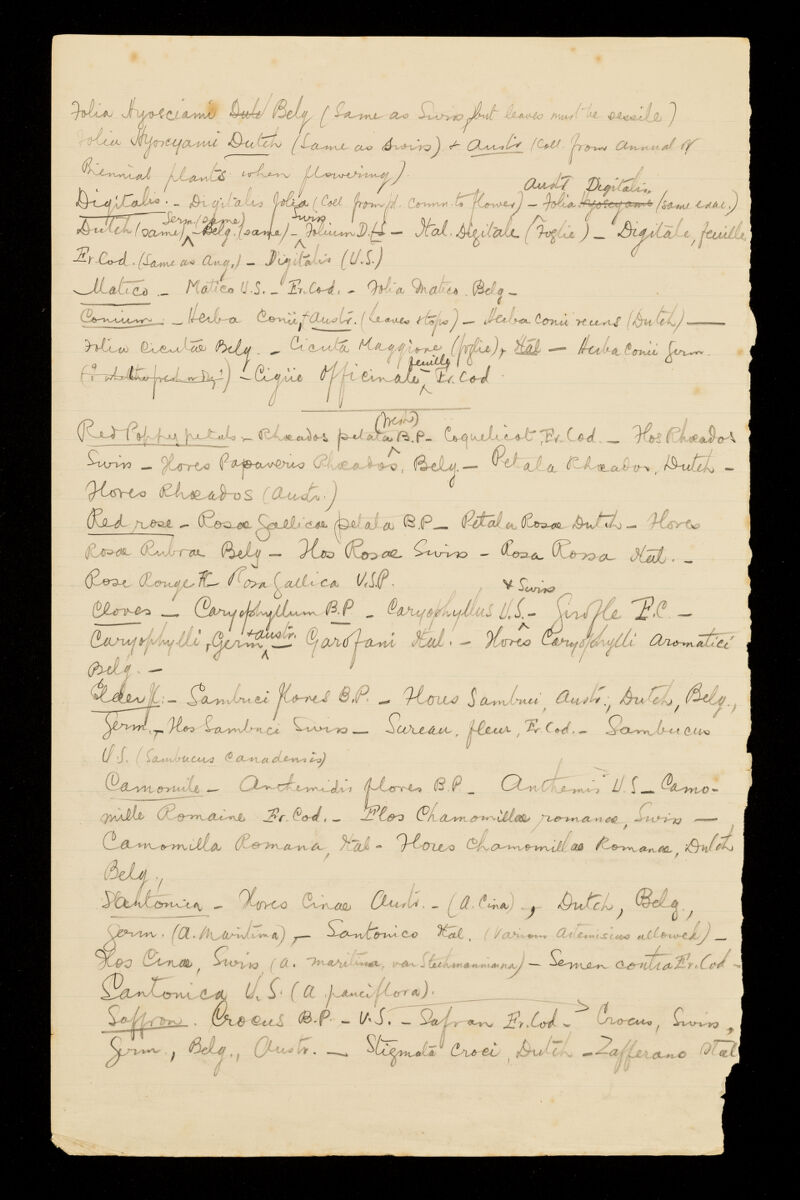 Folia Hyosciami Dutch Belg (Same as Swiss, but leaves must be sessile)
Folia Hyoscyami Dutch (Same as Swiss) & Austr (Coll. from annual or
Biennial plants when flowering).
Digitalis. - Digitalis folia (Coll from pl. commn. to flower) - Austr Folia Hyoscyami Digitalis (same exac.)
Dutch (same), Germ (same) - Belg. (same) - Swiss Folium D.- Ital. Digitale (Foglie) - Digitale, feuille
Fr. Cod. (Same as Ang.) - Digitalis (U.S.)
Matico - Matico U.S. - Fr. Cod. - Folia Matico Belg -
Conium - Herba Conii, & Austr. (leaves & tops) - Herba Conii recens (Dutch) -
Folia Cicutæ Belg. - Cicuta Maggiore (foglie), Ital - Herba Conii Germ.
(? whether fresh or dry?) - Cigüe Officinale feuille Fr. Cod
Red Poppy petals - Rhœados petala (recent) B.P - Coquelicot, Fr. Cod. - Flos Rhœados
Swiss - Flores Papaveris Rhœados, Belg. - Petala Rhœados, Dutch -
Flores Rhœados (Austr.)
Red rose - Rosæ Gallicæ petala B.P - Petala Rosæ Dutch - Flores
Rosæ Rubræ Belg - Flos Rosæ Swiss - Rosa Rossa Ital. -
Rose Rouge Fr - Rosa Gallica U.S.P.
Cloves - Caryophyllum B.P - Caryophyllus U.S. & Swiss - Girofle F.C. -
Caryophylli, Germ & Austr. - Garofani Ital. - Flores Caryophylli Aromatici
Belg. -
Elder fl: - Sambuci flores B.P. - Flores Sambuci, Austr., Dutch, Belg.,
Germ. - Flos Sambuci Swiss - Sureau, fleur, Fr. Cod. - Sambucus
U.S. (Sambucus Canadensis)
Camomile - Anthemidis flores B.P - Anthemis U.S - Camo-
mille Romaine Fr. Cod. - Flos Chamomillæ romanæ, Swiss -
Camomilla Romana, Ital - Flores Chamomillæ Romanæ, Dutch
Belg.,
Santonica - Flores Cinae Austr. - (A. Cina), Dutch, Belg.,
Germ. (A. Maritima), - Santonico Ital. (Various Artemisias allowed) -
Flos Cinæ, Swiss, (A. maritima, var Stechmanniana) - Semen contra Fr. Cod -
Santonica U.S. (A pauciflora).
Saffron. Crocus B.P. - U.S. - Safran Fr. Cod - Crocus, Swiss,
Germ., Belg., Austr. - Stigmata Croci, Dutch - Zafferano Ital